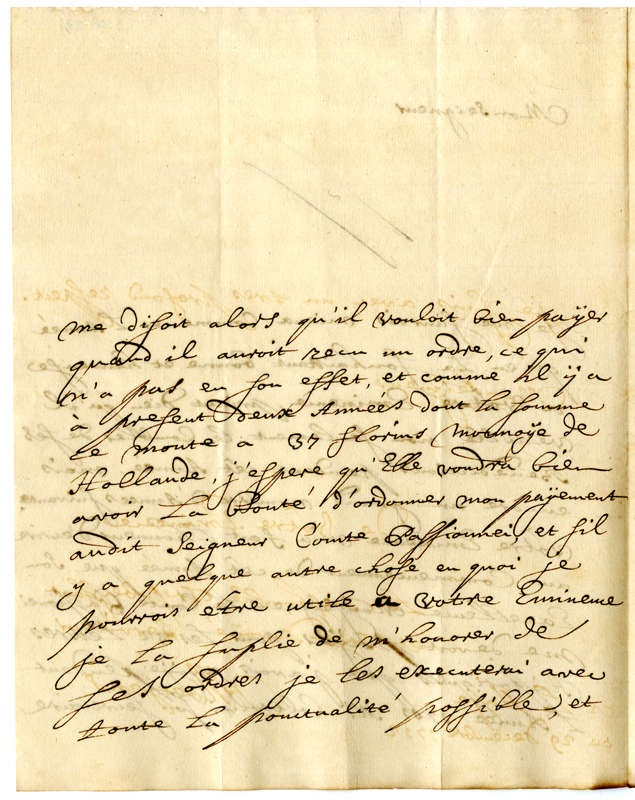 me disoit alors qu'il vouloit bien paÿer
quand il auroit recu un ordre, ce qui
n'a pas eu son effet, et comme il ÿ a
à present deux Années dont la somme
se monte a 37 florins monnoÿe de
Hollande, j'espere qu'Elle voudra bien
avoir La Bonté d'ordonner mon païement
audit Seigneur Comte Passionnei, et s'il
y a quelque autre chose en quoi je
pourrois etre utile a Votre Eminence
je la suplie de m'honorer de
ses ordres je les executerai avec
toute la ponctualité possible, et